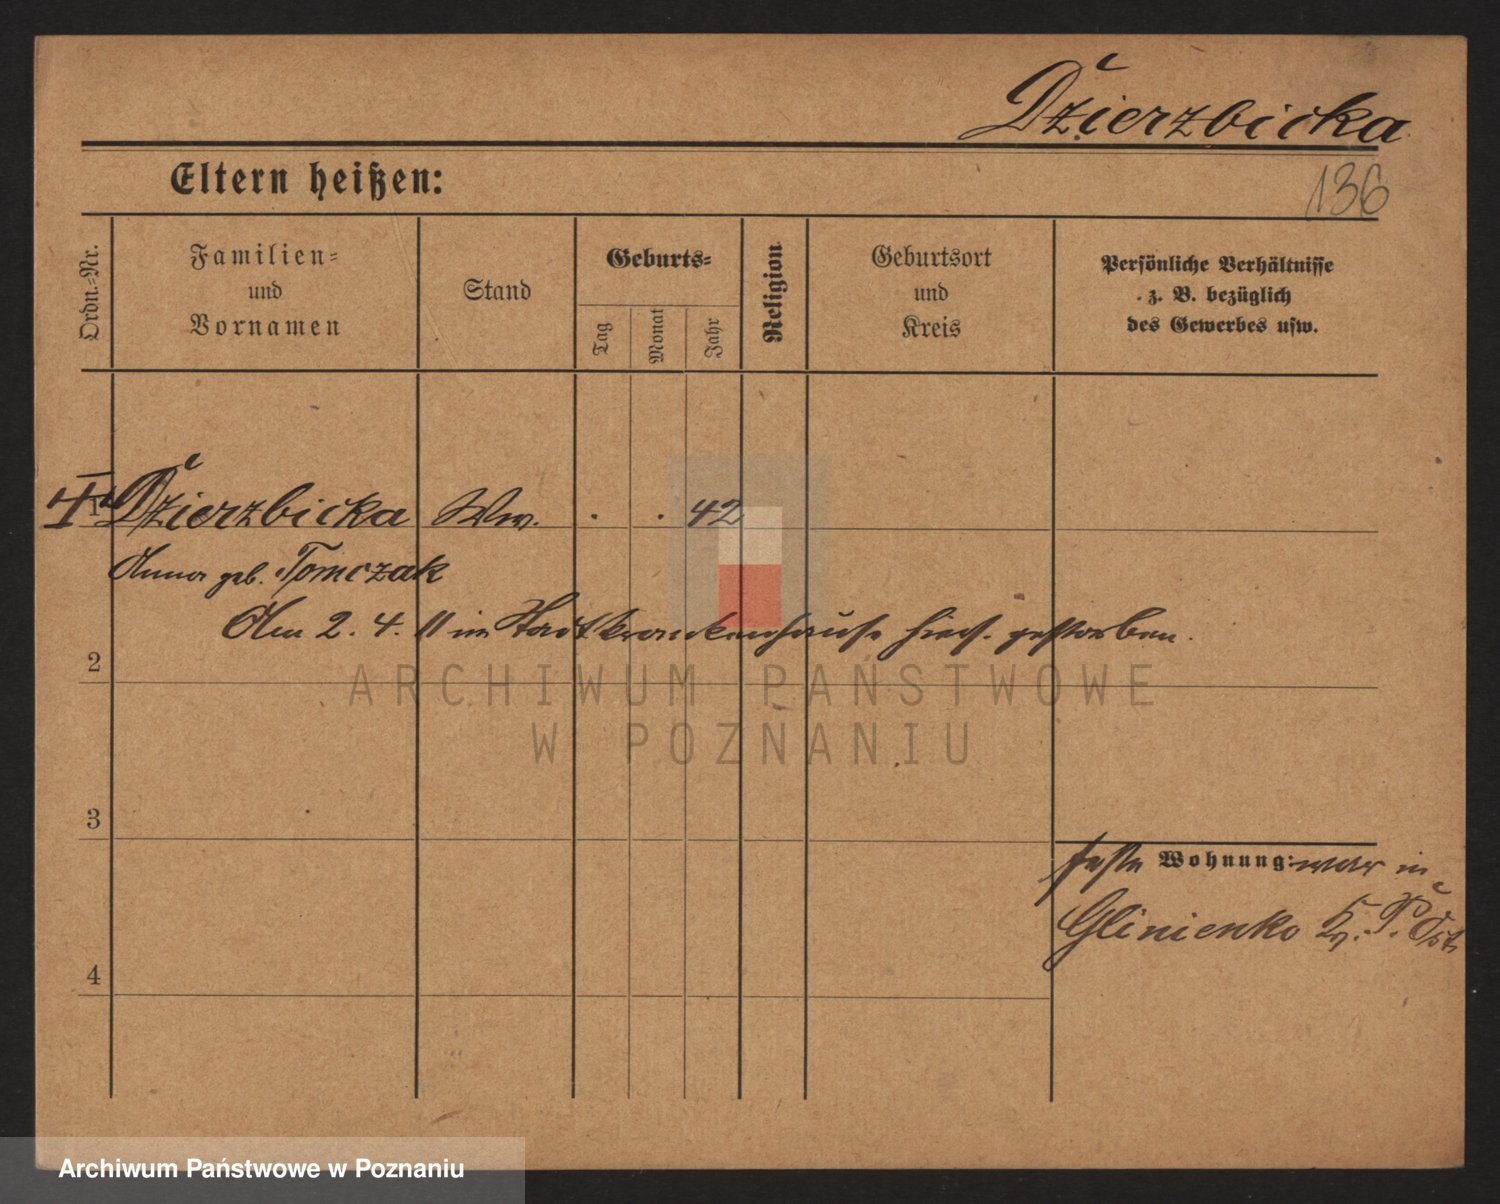 Dzierzbicka
Eltern heißen:
136
Ordn.-Nr.
Familien-
und
Vornamen
Stand
Geburts-
Tag
Monat
Jahr
Religion
Geburtsort
und
Kreis
Persönliche Verhältnisse
z. B. bezüglich
des Gewerbes usw.
1 Dzierzbicka Ww. . . 42
Anna geb. Tomczak
Am 2. 4. 11 im Stadtkrankenhause hies. gestorben.
2
ARCHIWUM PAŃSTWOWE
W POZNANIU
3
feste Wohnung: war in
Glinienko Kr. P. Ost
4
Archiwum Państwowe w Poznaniu